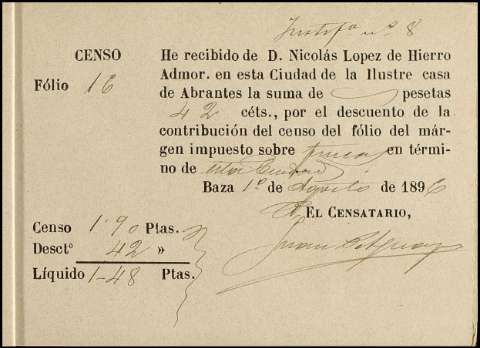 Justifte nº 8
CENSO
Fólio 16
He recibido de D. Nicolás Lopez de Hierro
Admor. en esta Ciudad de la Ilustre casa
de Abrantes la suma de — pesetas
42 céts., por el descuento de la
contribución del censo del fólio del már-
gen impuesto sobre finca en térmi-
no de esta Ciudad
Baza 1º de Agosto de 1896
EL CENSATARIO,
Censo 1·90 Ptas.
Desctº 42 »
Líquido 1-48 Ptas.
Juan